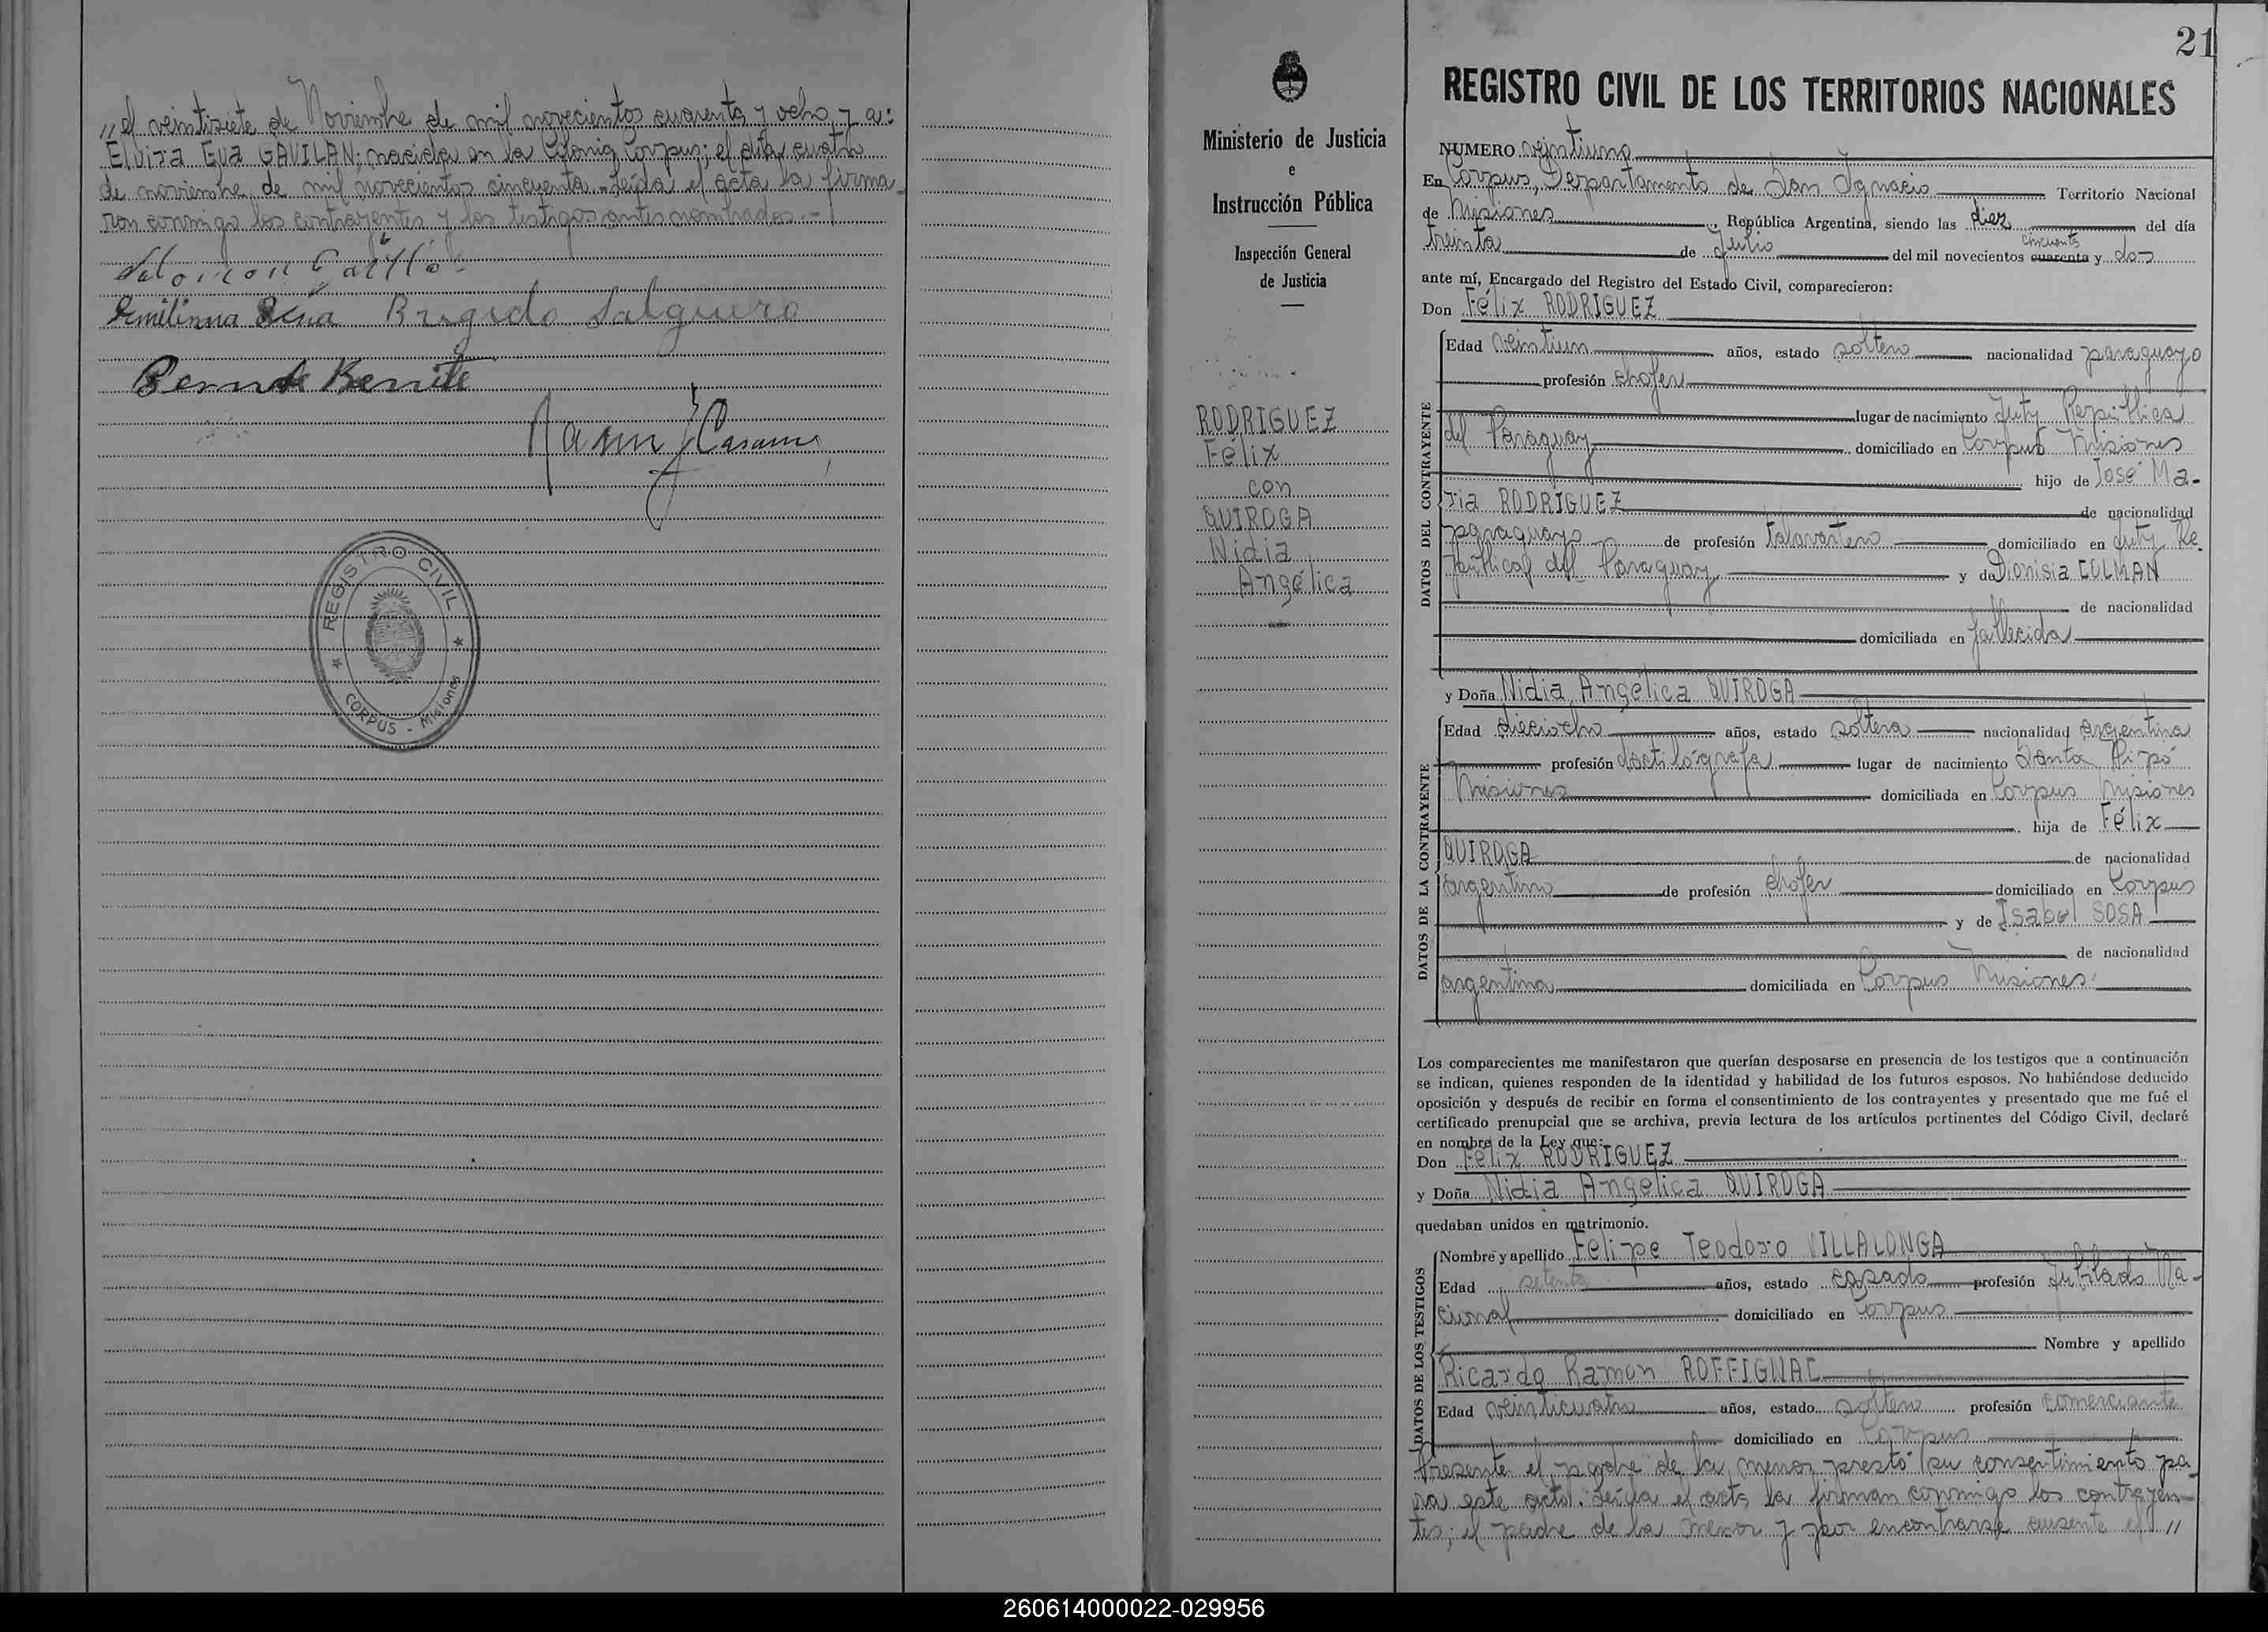 „el veintisiete de Noviembre de mil novecientos cuarenta y ocho y a:
Elvira Eva GAVILAN; nacida en la Colonia Corpus; el día cuatro
de noviembre de mil novecientos cincuenta. Leída el acta la firma
ron conmigo los contrayentes y los testigos antes nombrados.-
Brigido Salguero
REGISTRO CIVIL
CORPUS - Misiones
Ministerio de Justicia
e
Instrucción Pública
Inspección General
de Justicia
RODRIGUEZ
Félix
con
QUIROGA
Nidia
Angélica
21
REGISTRO CIVIL DE LOS TERRITORIOS NACIONALES
NUMERO veintiuno
En Corpus, Departamento de San Ignacio Territorio Nacional
de Misiones, República Argentina, siendo las diez del día
cincuenta
treinta de Julio del mil novecientos cuarenta y dos
ante mí, Encargado del Registro del Estado Civil, comparecieron:
Don Félix RODRIGUEZ
DATOS DEL CONTRAYENTE
Edad veintiun años, estado soltero nacionalidad paraguayo
profesión chofer
lugar de nacimiento Yuty República
del Paraguay domiciliado en Corpus Misiones
hijo de José Ma-
ria RODRIGUEZ de nacionalidad
paraguayo de profesión talavartero domiciliado en Yuty Re
pública del Paraguay y de Dionisia COLMAN
de nacionalidad
domiciliada en fallecida
y Doña Nidia Angélica QUIROGA
DATOS DE LA CONTRAYENTE
Edad dieciocho años, estado soltera nacionalidad argentina
profesión dactilógrafa lugar de nacimiento Santo Pipó
Misiones domiciliada en Corpus Misiones
hija de Félix
QUIROGA de nacionalidad
argentino de profesión chofer domiciliado en Corpus
y de Isabel SOSA
de nacionalidad
argentina domiciliada en Corpus Misiones
Los comparecientes me manifestaron que querían desposarse en presencia de los testigos que a continuación
se indican, quienes responden de la identidad y habilidad de los futuros esposos. No habiéndose deducido
oposición y después de recibir en forma el consentimiento de los contrayentes y presentado que me fué el
certificado prenupcial que se archiva, previa lectura de los artículos pertinentes del Código Civil, declaré
en nombre de la Ley que:
Don Félix RODRIGUEZ
y Doña Nidia Angélica QUIROGA
quedaban unidos en matrimonio.
DATOS DE LOS TESTIGOS
Nombre y apellido Felipe Teodoro VILLALONGA
Edad setenta años, estado casado profesión Jubilado Na-
cional domiciliado en Corpus
Nombre y apellido
Ricardo Ramon ROFFIGNAC
Edad veinticuatro años, estado soltero profesión comerciante
domiciliado en Corpus
Presente el padre de la menor prestó su consentimiento pa
ra este acto. Leída el acta la firman conmigo los contrayen-
tes; el padre de la menor y por encontrarse ausente el „
260614000022-029956